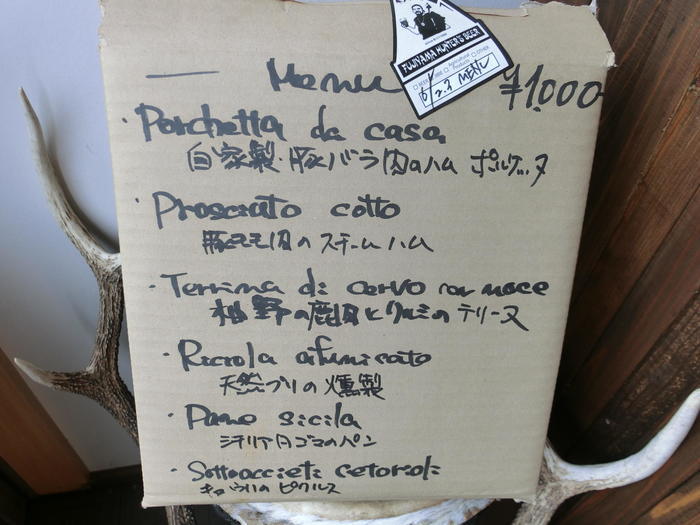 FUJIYAMA HUNTER'S BEER
BEER
Agricultural Products
OTHER
MENU
Menu
¥1,000
・Porchetta da casa
自家製・豚バラ肉のハム ポルケッタ
・Prosciuto cotto
豚モモ肉のスチームハム
・Terrina di cervo con noce
柚野の鹿肉とクルミのテリーヌ
・Ricciola afumicato
天然ブリの燻製
・Pane sicila
シチリア风ゴマのパン
・Sottoaccieti cetorioli
キュウリのピクルス